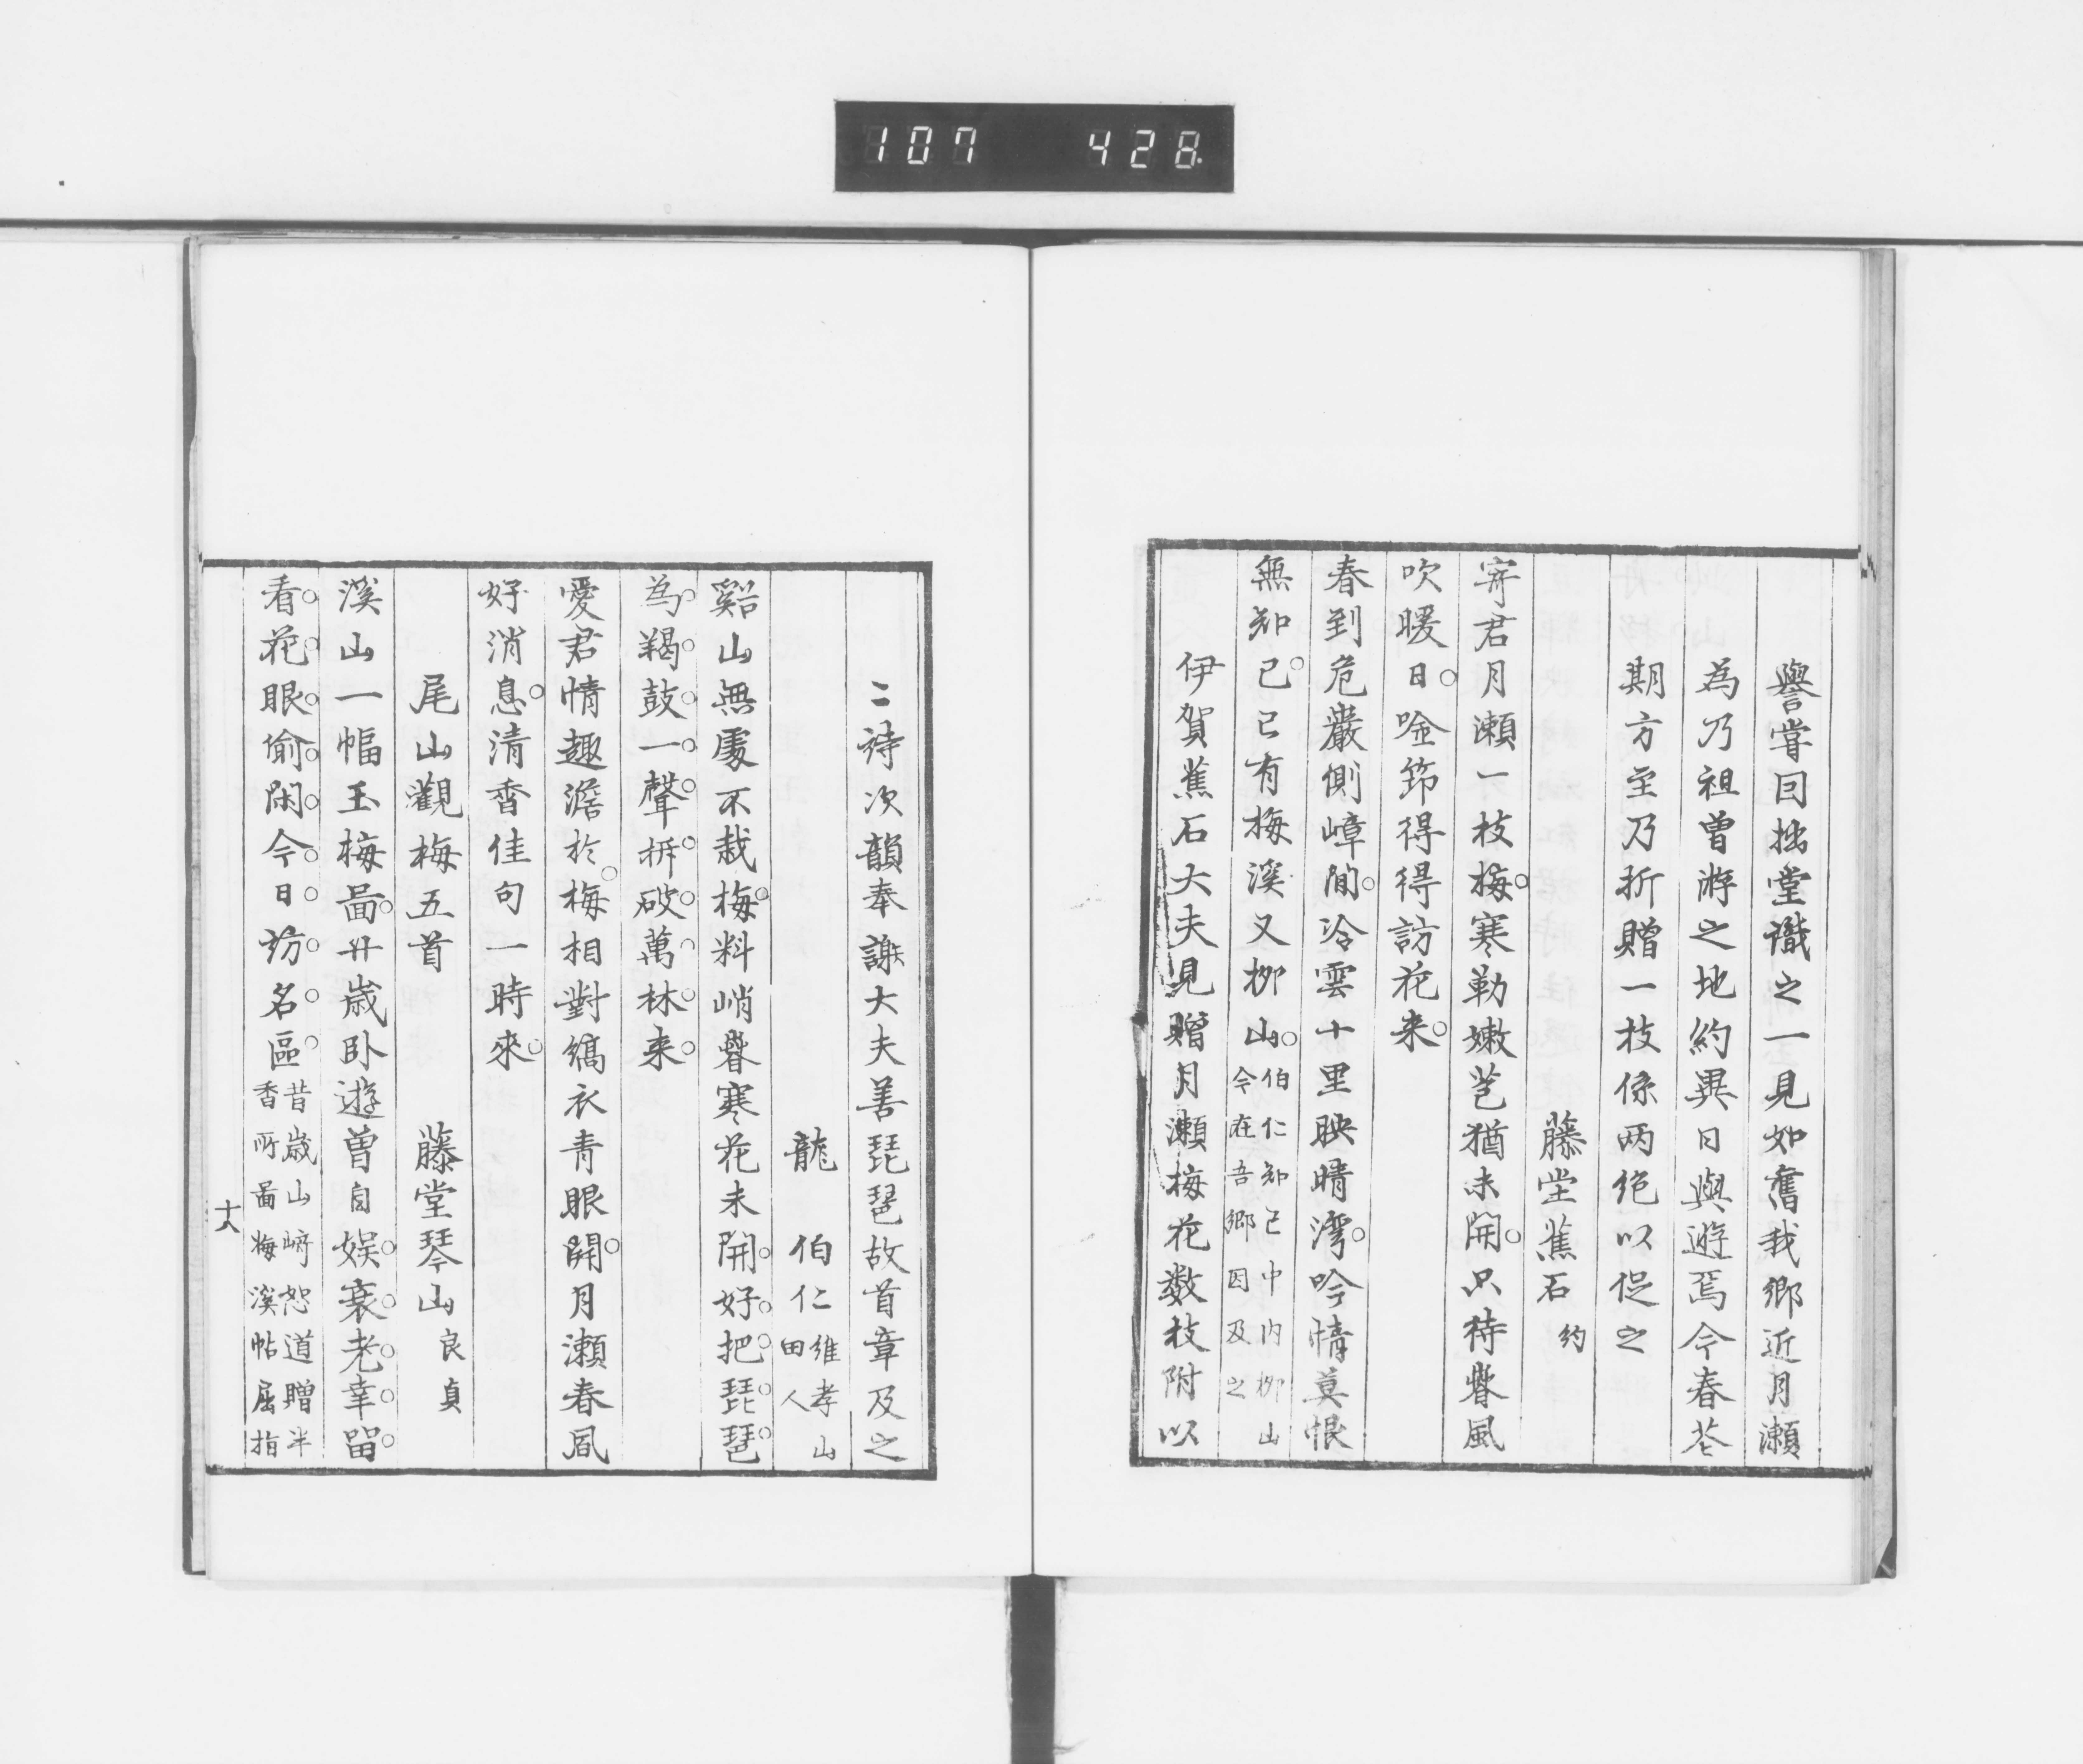 107 428
譽嘗回拙堂識之一見如舊我鄉近月瀬
為乃祖曽游之地約異日與遊焉今春花
期方至乃折贈一枝係兩絶以促之
藤堂蕉石 約
寄君月瀬一枝梅寒勒嫩芭猶未開只待誉風
吹暖日唫筇得得訪花来
春到危巖側嶂間冷雲十里映晴湾吟情莫恨
無知己已有梅溪又栁山 伯仁知己中内栁山
今在吾鄉因及之
伊賀蕉石大夫見贈月瀬梅花数枝附以
二詩次韻奉謝大夫善琵琶故首章及之
龍 伯仁 維孝山
田人
谿山無處不栽梅料峭誉寒花未開好把琵琶
為羯鼓一聲拆破萬林来
愛君情趣澹於梅相對縞衣青眼開月瀬春風
好消息清香佳句一時來
尾山觀梅五首 藤堂琴山 良貞
溪山一幅玉梅啚廿歳卧遊曽自娯衰老幸留
看花眼偷閑今日訪名區 昔歳山﨑恕道贈半
香所啚梅溪帖屈指
十八